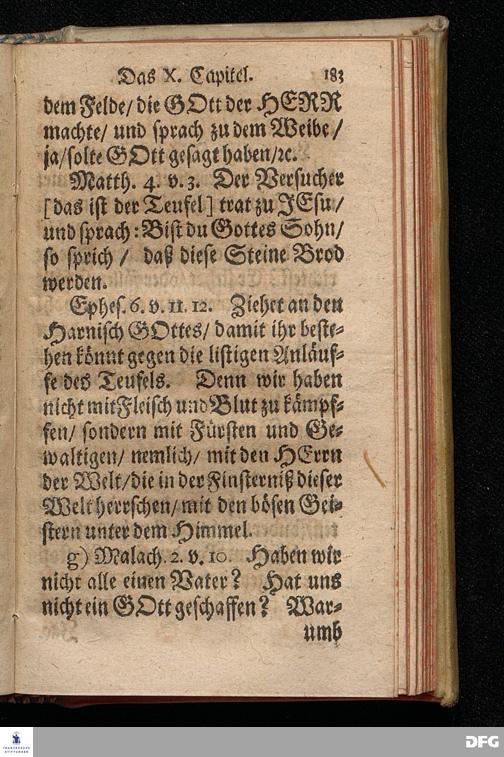 Das X. Capitel. 183
dem Felde/ die GOtt der HERR
machte/ und sprach zu dem Weibe/
ja/ solte GOtt gesagt haben/ ꝛc.
Matth. 4. v. 3. Der Versucher
[das ist der Teufel] trat zu JEsu/
und sprach: Bist du Gottes Sohn/
so sprich / daß diese Steine Brod
werden.
Ephes. 6. v. 11. 12. Ziehet an den
Harnisch GOttes/ damit ihr beste-
hen könnt gegen die listigen Anläuf-
fe des Teufels. Denn wir haben
nicht mit Fleisch und Blut zu kämpf-
fen/ sondern mit Fürsten und Ge-
waltigen/ nemlich/ mit den HErrn
der Welt/ die in der Finsterniß dieser
Welt herrschen/ mit den bösen Gei-
stern unter dem Himmel.
g) Malach. 2. v. 10. Haben wir
nicht alle einen Vater? Hat uns
nicht ein GOtt geschaffen? War-
umb
FRANCKESCHE
STIFTUNGEN
DFG